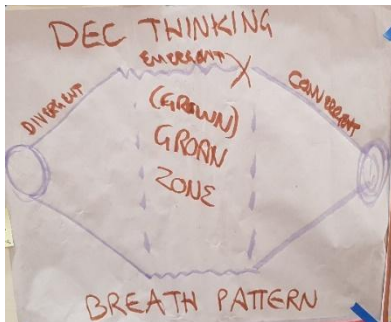 DEC THINKING
EMERGENT
DIVERGENT
CONVERGENT
(GROWN)
GROAN
ZONE
BREATH PATTERN